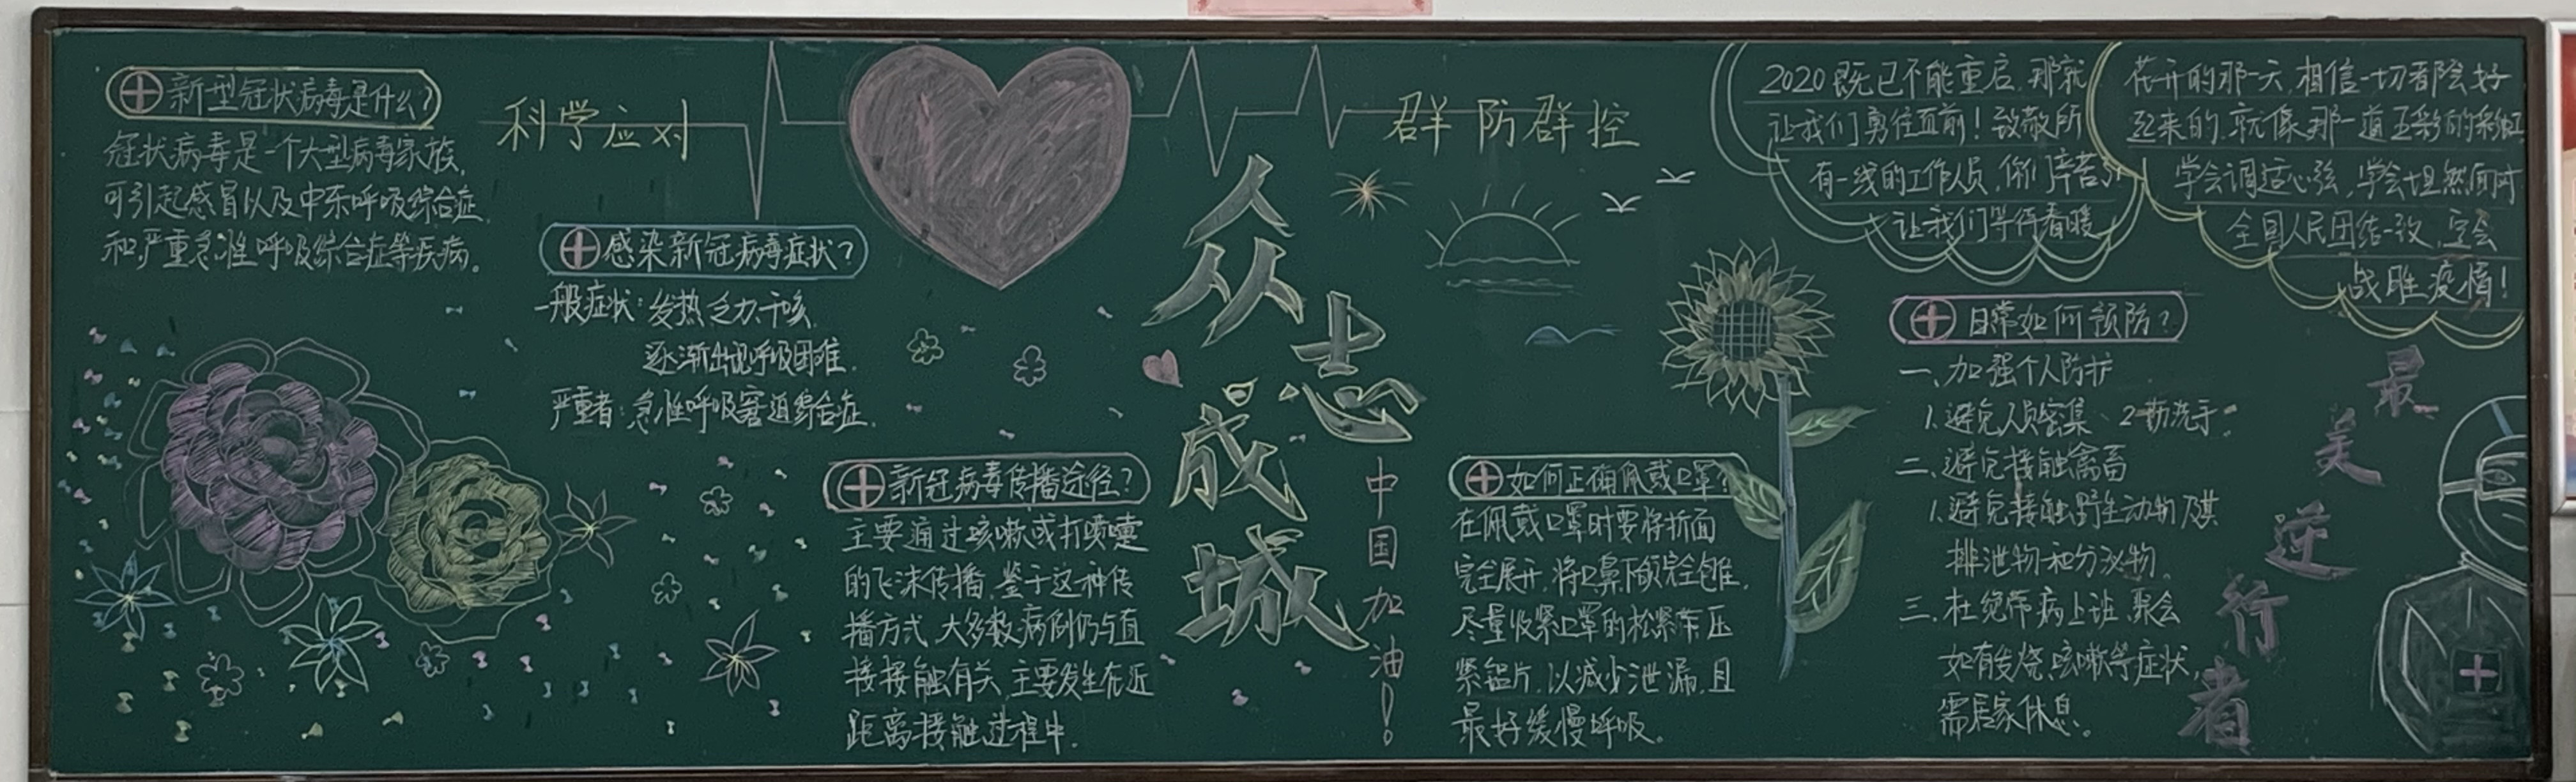 新型冠状病毒是什么?
冠状病毒是一个大型病毒家族,
可引起感冒以及中东呼吸综合症
和严重急性呼吸综合症等疾病。
科学应对
感染新冠病毒症状?
一般症状:发热乏力干咳
逐渐出现呼吸困难.
严重者:急性呼吸窘迫综合症.
新冠病毒传播途径?
主要通过咳嗽或打喷嚏
的飞沫传播,鉴于这种传
播方式,大多数病例仍与直
接接触有关,主要发生在近
距离接触过程中.
众志成城
中国加油!
群防群控
如何正确佩戴口罩?
在佩戴口罩时要将折面
完全展开,将口鼻下颌完全包住,
尽量收紧口罩的松紧带压
紧铝片,以减少泄漏,且
最好缓慢呼吸。
2020既已不能重启,那就
让我们勇往直前!致敬所
有一线的工作人员,你们辛苦了!
让我们学待春暖
花开的那一天,相信一切都会好
起来的,就像那一道五彩的彩虹
学会调适心弦,学会坦然面对
全国人民团结一致,定会
战胜疫情!
日常如何预防?
一、加强个人防护
1.避免人员密集、2勤洗手;
二、避免接触禽畜
1.避免接触野生动物及其
排泄物和分泌物。
三、杜绝带病上班、聚会
如有发烧,咳嗽等症状,
需居家休息。
最美逆行者